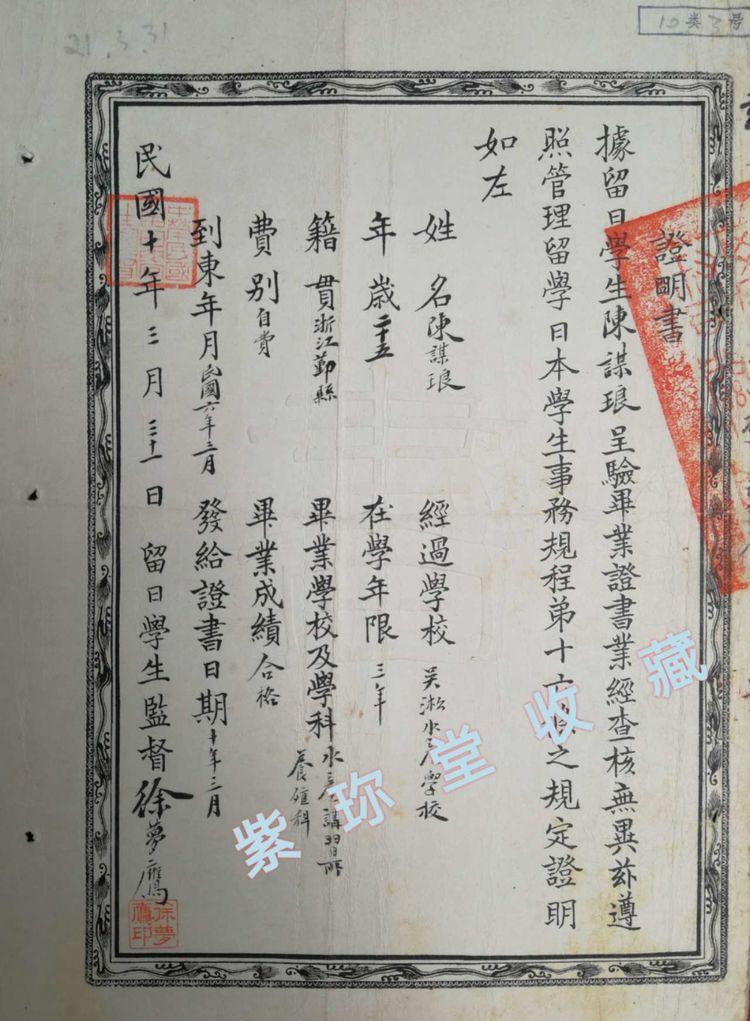 21.3.31
10类3号
證明書
據留日學生陳謀琅呈驗畢業證書業經查核無異茲遵
照管理留學日本學生事務規程第十 條之規定證明
如左
姓名陳謀琅
經過學校 吳淞水產學校
年歲二十五
在學年限 三年
籍貫浙江勤縣
畢業學校及學科 水產講習所
養殖科
費別自費
畢業成績 合格
到東年月民國六年三月
發給證書日期 十年三月
民國十年三月三十一日 留日學生監督 徐夢鷹
徐夢
鷹印
紫珎堂收藏